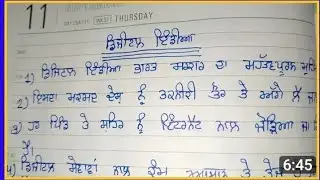 11
THURSDAY
ਡਿਜੀਟਲ ਇੰਡੀਆ
1) ਡਿਜਿਟਲ ਇੰਡੀਆ ਭਾਰਤ ਸਰਕਾਰ ਦਾ ਮਹੱਤਵਪੂਰਨ
2) ਇਸਦਾ ਮਕਸਦ ਦੇਸ਼ ਨੂੰ ਤਕਨੀਕੀ ਤੌਰ ਤੇ ਅੱਗੇ ਲੈ
3) ਹਰ ਪਿੰਡ ਤੇ ਸ਼ਹਿਰ ਨੂੰ ਇੰਟਰਨੈੱਟ ਨਾਲ ਜੋੜਿਆ ਜਾ
ਹੈ।
4) ਡਿਜੀਟਲ ਸੇਵਾਵਾਂ ਨਾਲ ਕੰਮ ਤੇ
6:45